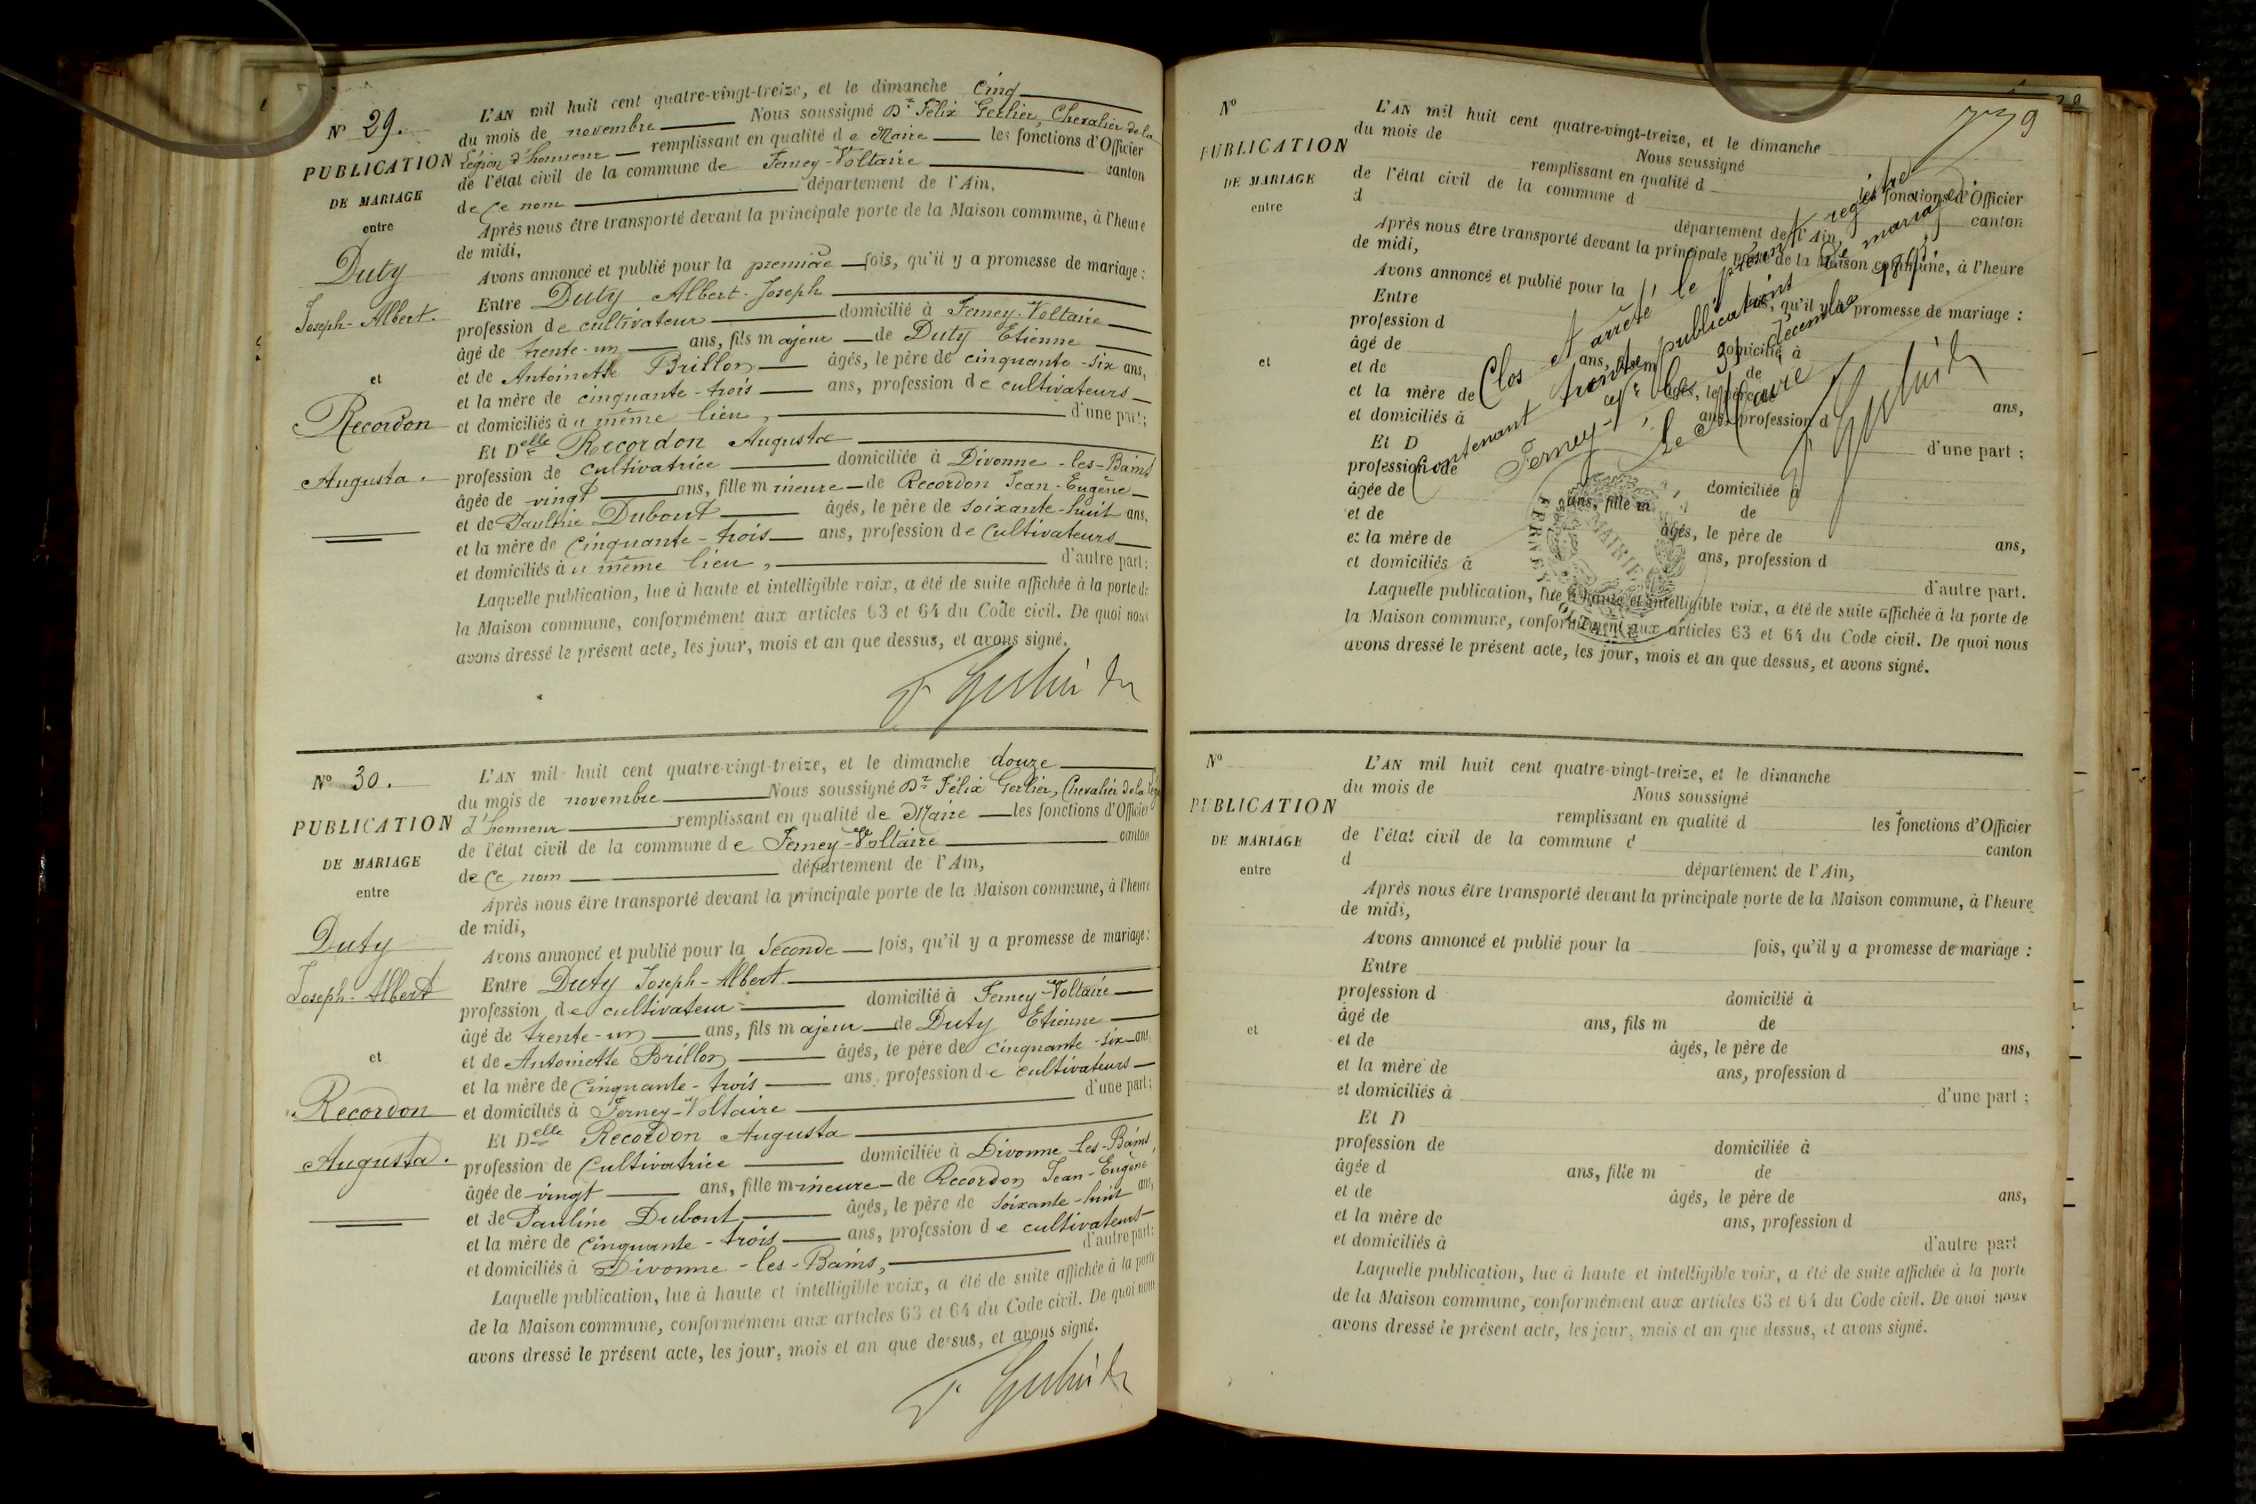 N° 29.
PUBLICATION
DE MARIAGE
entre
Duty
Joseph-Albert.
et
Recordon
Augusta.
L'AN mil huit cent quatre-vingt-treize, et le dimanche cinq
du mois de novembre Nous soussigné Dr Félix Gerlier, Chevalier de la
Légion d'honneur remplissant en qualité de Maire les fonctions d'Officier
de l'état civil de la commune de Ferney-Voltaire canton
de ce nom département de l'Ain,
Après nous être transporté devant la principale porte de la Maison commune, à l'heure
de midi,
Avons annoncé et publié pour la première fois, qu'il y a promesse de mariage :
Entre Duty Albert-Joseph
profession de cultivateur domicilié à Ferney-Voltaire
âgé de trente-un ans, fils majeur de Duty Etienne
et de Antoinette Brillon âgés, le père de cinquante-six ans,
et la mère de cinquante-trois ans, profession de cultivateurs
et domiciliés à u même lieu, d'une part;
Et Delle Recordon Augusta
profession de cultivatrice domiciliée à Divonne-les-Bains
âgée de vingt ans, fille mineure de Recordon Jean-Eugène
et de Pauline Dubout âgés, le père de soixante-huit ans,
et la mère de cinquante-trois ans, profession de cultivateurs
et domiciliés à u même lieu, d'autre part;
Laquelle publication, lue à haute et intelligible voix, a été de suite affichée à la porte de
la Maison commune, conformément aux articles 63 et 64 du Code civil. De quoi nous
avons dressé le présent acte, les jour, mois et an que dessus, et avons signé.
N° 30.
PUBLICATION
DE MARIAGE
entre
Duty
Joseph-Albert
et
Recordon
Augusta.
L'AN mil huit cent quatre-vingt-treize, et le dimanche douze
du mois de novembre Nous soussigné Dr Félix Gerlier, Chevalier de la Légion
d'honneur remplissant en qualité de Maire les fonctions d'Officier
de l'état civil de la commune de Ferney-Voltaire canton
de ce nom département de l'Ain,
Après nous être transporté devant la principale porte de la Maison commune, à l'heure
de midi,
Avons annoncé et publié pour la seconde fois, qu'il y a promesse de mariage:
Entre Duty Joseph-Albert
profession de cultivateur domicilié à Ferney-Voltaire
âgé de trente-un ans, fils majeur de Duty Etienne
et de Antoinette Brillon âgés, le père de cinquante-six ans,
et la mère de cinquante-trois ans, profession de cultivateurs
et domiciliés à Ferney-Voltaire d'une part;
Et Delle Recordon Augusta
profession de cultivatrice domiciliée à Divonne-les-Bains
âgée de vingt ans, fille mineure de Recordon Jean-Eugène
et de Pauline Dubout âgés, le père de soixante-huit ans,
et la mère de cinquante-trois ans, profession de cultivateurs
et domiciliés à Divonne-les-Bains, d'autre part;
Laquelle publication, lue à haute et intelligible voix, a été de suite affichée à la porte
de la Maison commune, conformément aux articles 63 et 64 du Code civil. De quoi nous
avons dressé le présent acte, les jour, mois et an que dessus, et avons signé.
N°
PUBLICATION
DE MARIAGE
entre
et
L'AN mil huit cent quatre-vingt-treize, et le dimanche
du mois de Nous soussigné
remplissant en qualité d les fonctions d'Officier
de l'état civil de la commune d canton
d département de l'Ain,
Après nous être transporté devant la principale porte de la Maison commune, à l'heure
de midi,
Avons annoncé et publié pour la fois, qu'il y a promesse de mariage :
Entre
profession d domicilié à
âgé de ans, fils m de
et de âgés, le père de ans,
et la mère de ans, profession d
et domiciliés à d'une part ;
Et D
profession de domiciliée à
âgée de ans, fille m de
et de âgés, le père de ans,
et la mère de ans, profession d
et domiciliés à d'autre part.
Laquelle publication, lue à haute et intelligible voix, a été de suite affichée à la porte de
la Maison commune, conformément aux articles 63 et 64 du Code civil. De quoi nous
avons dressé le présent acte, les jour, mois et an que dessus, et avons signé.
Clos et arrêté le présent registre
Contenant trente publications de mariage
Ferney-V, le 31 décembre 1893
Le Maire
MAIRIE
FERNEY
N°
PUBLICATION
DE MARIAGE
entre
et
L'AN mil huit cent quatre-vingt-treize, et le dimanche
du mois de Nous soussigné
remplissant en qualité d les fonctions d'Officier
de l'état civil de la commune d canton
d département de l'Ain,
Après nous être transporté devant la principale porte de la Maison commune, à l'heure
de midi,
Avons annoncé et publié pour la fois, qu'il y a promesse de mariage :
Entre
profession d domicilié à
âgé de ans, fils m de
et de âgés, le père de ans,
et la mère de ans, profession d
et domiciliés à d'une part ;
Et D
profession de domiciliée à
âgée d ans, fille m de
et de âgés, le père de ans,
et la mère de ans, profession d
et domiciliés à d'autre part
Laquelle publication, lue à haute et intelligible voix, a été de suite affichée à la porte
de la Maison commune, conformément aux articles 63 et 64 du Code civil. De quoi nous
avons dressé le présent acte, les jour, mois et an que dessus, et avons signé.